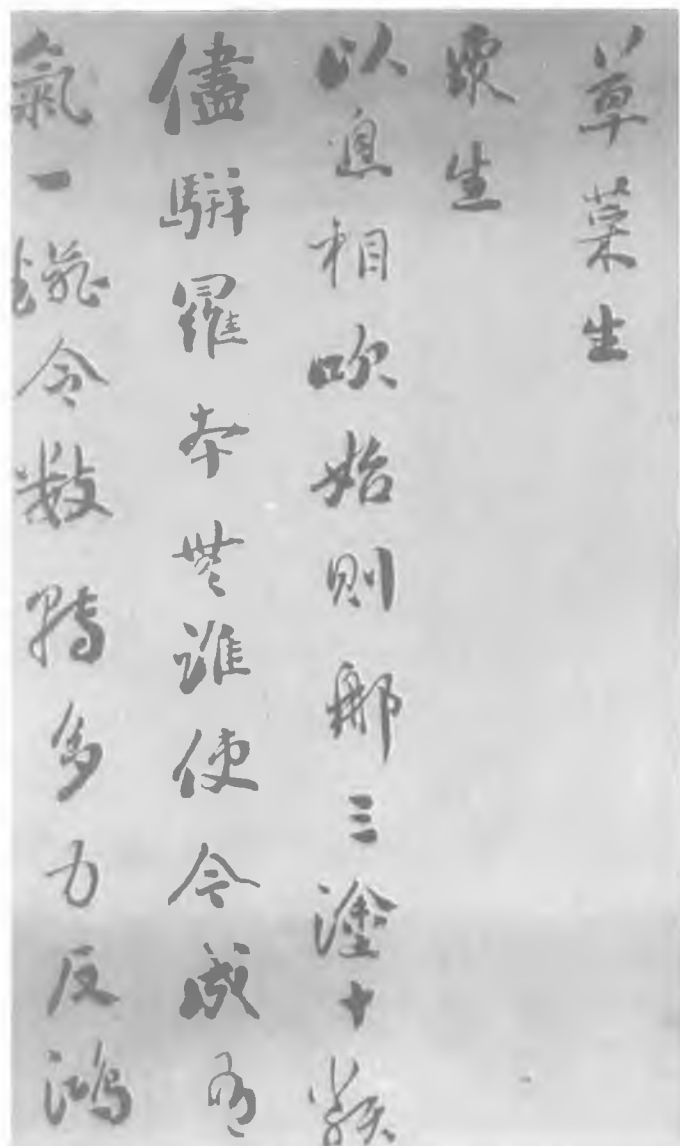 草菜生
眾生
以息相吹始則那三塗十類
儘駢羅本無誰使令咸有
氣一令數轉多力反鴻